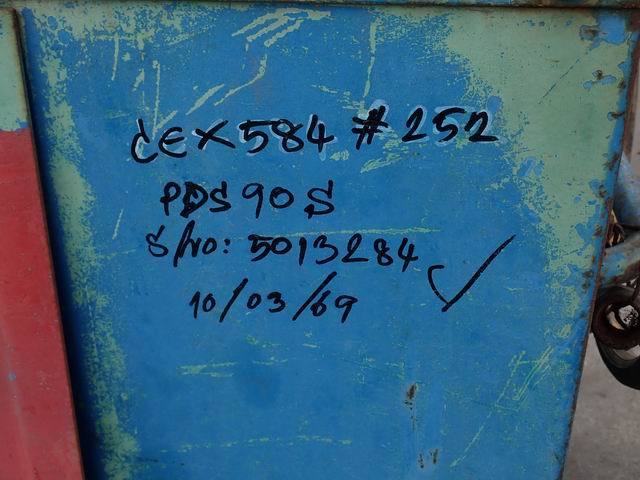 CEX584 #252
PDS90S
S/NO: 5013284
10/03/69